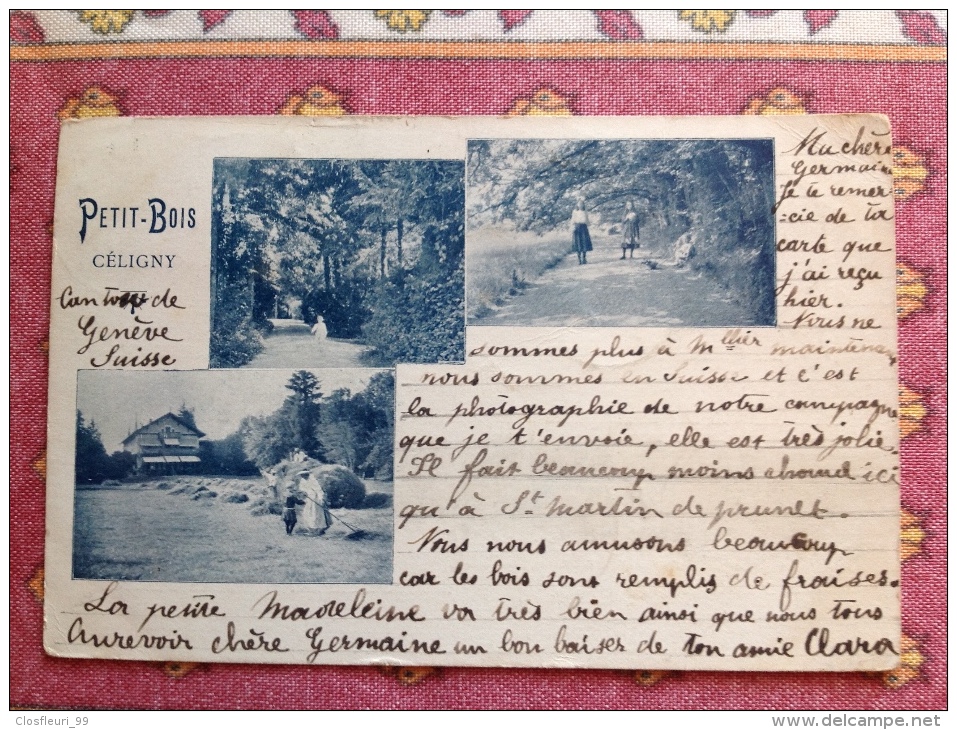 PETIT-BOIS
CÉLIGNY
Canton de
Genève
Suisse
Ma chère
Germaine
Je te remer-
-cie de ta
carte que
j'ai reçu
hier.
Nous ne
sommes plus à Mllier maintenant
nous sommes en Suisse et c'est
la photographie de notre campagne
que je t'envoie, elle est très jolie.
Il fait beaucoup moins chaud ici
qu'à St Martin de prunet.
Nous nous amusons beaucoup
car les bois sont remplis de fraises.
La petite Madeleine va très bien ainsi que nous tous
Aurevoir chère Germaine un bon baiser de ton amie Clara
Closfleuri_99
www.delcampe.net